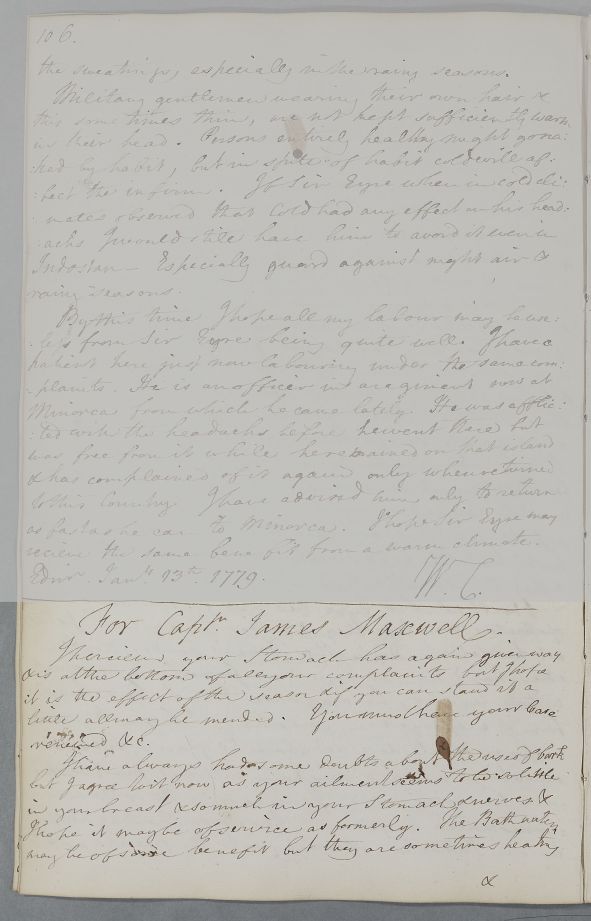 106.
the sweatings, especially in the rainy seasons.
Military gentlemen wearing their own hair &
this some times thin, are not kept sufficiently warm
in their head. Persons entirely healthy might go na:
:ked by habit, but in spite of habit cold will af:
:fect the infirm. If Sir Eyre when in cold cli:
:mates observed that Cold had any effect on his head:
:achs I would still have him to avoid it even in
Indostan — Especially guard against night air &
rainy seasons.
By this time I hope all my labour may be use:
:less from Sir Eyre being quite well. I have a
patient here just now labouring under the same com:
:plaints. He is an officer in a regiment now at
Minorca from which he came lately. He was afflic:
:ted with the headachs before he went there but
was free from it while he remained on that island
& has complained of it again only when returned
to this Country. I have advised him only to return
as fast as he can to Minorca. I hope Sir Eyre may
recieve the same benefit from a warm climate.
Edinr. Jany. 13th. 1779. W. C.
For Captn. James Maxwell.
I percieve your Stomach has again given way
& is at the bottom of all your complaints but I hope
it is the effect of the season & if you can stand it a
little all may be mended. You must have your Case
reviewed, &c.
I have always had some doubts about the use of bark
but I agree to it now as your ailment seems to be so little
in your breast & so much in your Stomach & nerves &
I hope it may be of service as formerly. The Bath waters
may be of some benefit but they are sometimes heating
&